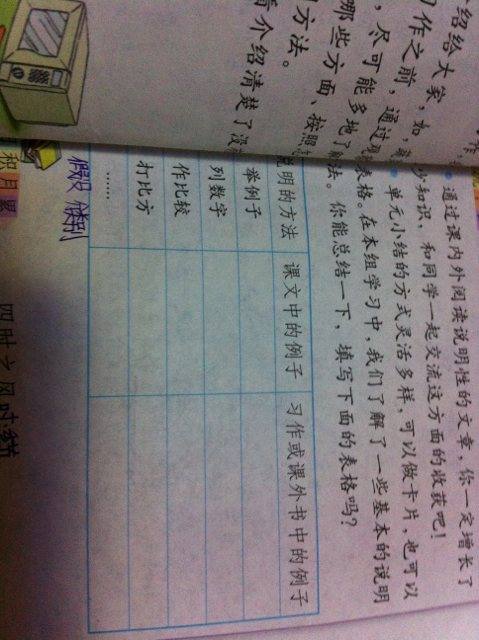 绍给大家，如，
作之前，通过
，尽可能多地了
哪些方面、按照
方法。
介绍清楚了没
通过课内外阅读说明性的文章，你一定增长了
少知识，和同学一起交流这方面的收获吧！
单元小结的方式灵活多样，可以做卡片，也可以
表格。在本组学习中，我们了解了一些基本的说明
法。你能总结一下，填写下面的表格吗？
说明的方法 课文中的例子 习作或课外书中的例子
举例子
列数字
作比较
打比方
……
和月
四时之风